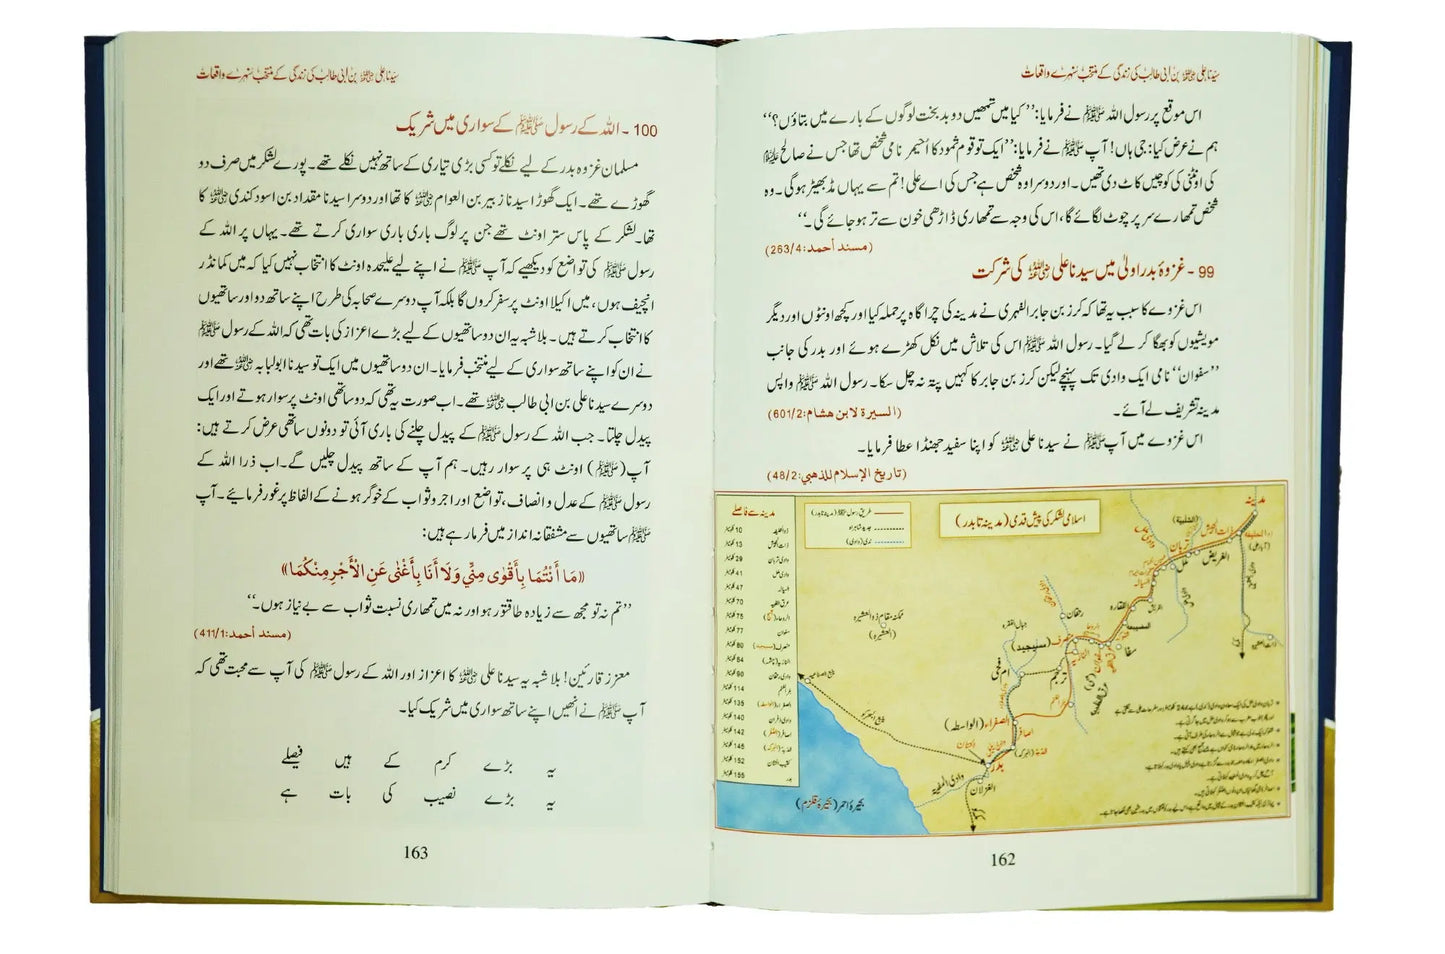 سیدنا علی رضی اللہ عنہ بن ابی طالب کی زندگی کے منتخب سنہرے واقعات
اس موقع پر رسول اللہ ﷺ نے فرمایا: ’’کیا میں تمھیں دو بد بخت لوگوں کے بارے میں بتاؤں؟‘‘
ہم نے عرض کیا: جی ہاں! آپ ﷺ نے فرمایا: ’’ایک تو قوم ثمود کا اُحیمر نامی شخص تھا جس نے صالح علیہ السلام
کی اونٹنی کی کوچیں کاٹ دی تھیں۔ اور دوسرا وہ شخص ہے جس کی اے علی! تم سے یہاں مڈبھیڑ ہوگی۔ وہ
شخص تمھارے سر پر چوٹ لگائے گا، اس کی وجہ سے تمھاری ڈاڑھی خون سے تر ہو جائے گی۔‘‘
(مسند أحمد: 263/4)
99 - غزوۂ بدر اولیٰ میں سیدنا علی رضی اللہ عنہ کی شرکت
اس غزوے کا سبب یہ تھا کہ کرز بن جابر الفہری نے مدینہ کی چراگاہ پر حملہ کیا اور کچھ اونٹوں اور دیگر
مویشیوں کو بھگا کر لے گیا۔ رسول اللہ ﷺ اس کی تلاش میں نکل کھڑے ہوئے اور بدر کی جانب
’’سفوان‘‘ نامی ایک وادی تک پہنچے لیکن کرز بن جابر کا کہیں پتہ نہ چل سکا۔ رسول اللہ ﷺ واپس
مدینہ تشریف لے آئے۔ (السيرة لابن هشام: 601/2)
اس غزوے میں آپ ﷺ نے سیدنا علی رضی اللہ عنہ کو اپنا سفید جھنڈا عطا فرمایا۔
(تاريخ الإسلام للذهبي: 48/2)
اسلامی لشکر کی پیش قدمی (مدینہ تا بدر)
جدید شاہراہ
ندی (وادی)
مدینہ سے فاصلے
مدینہ
العریض
تربان
ملل
سفا
(سنیجید)
منصرف
رحقان
جبال الفقرہ
ام فجی
الصفراء (الواسطہ)
بدر
الغزلان
مکہ
ینبع البحر
(العشیرہ)
بحیرۂ احمر (بحیرۂ قلزم)
162
سیدنا علی رضی اللہ عنہ بن ابی طالب کی زندگی کے منتخب سنہرے واقعات
100 - اللہ کے رسول ﷺ کے سواری میں شریک
مسلمان غزوہ بدر کے لیے نکلے تو کسی بڑی تیاری کے ساتھ نہیں نکلے تھے۔ پورے لشکر میں صرف دو
گھوڑے تھے۔ ایک گھوڑا سیدنا زبیر بن العوام رضی اللہ عنہ کا تھا اور دوسرا سیدنا مقداد بن اسود کندی رضی اللہ عنہ کا
تھا۔ لشکر کے پاس ستر اونٹ تھے جن پر لوگ باری باری سواری کرتے تھے۔ یہاں پر اللہ کے
رسول ﷺ کی تواضع کو دیکھیے کہ آپ ﷺ نے اپنے لیے علیحدہ اونٹ کا انتخاب نہیں کیا کہ میں کمانڈر
انچیف ہوں، میں اکیلا اونٹ پر سفر کروں گا بلکہ آپ دوسرے صحابہ کی طرح اپنے ساتھ دو اور ساتھیوں
کا انتخاب کرتے ہیں۔ بلاشبہ یہ ان دو ساتھیوں کے لیے بڑے اعزاز کی بات تھی کہ اللہ کے رسول ﷺ
نے ان کو اپنے ساتھ سواری کے لیے منتخب فرمایا۔ ان دو ساتھیوں میں ایک تو سیدنا ابولبابہ رضی اللہ عنہ تھے اور
دوسرے سیدنا علی بن ابی طالب رضی اللہ عنہ تھے۔ اب صورت یہ تھی کہ دو ساتھی اونٹ پر سوار ہوتے اور ایک
پیدل چلتا۔ جب اللہ کے رسول ﷺ کے پیدل چلنے کی باری آئی تو دونوں ساتھی عرض کرتے ہیں:
آپ (ﷺ) اونٹ ہی پر سوار رہیں۔ ہم آپ کے ساتھ پیدل چلیں گے۔ اب ذرا اللہ کے
رسول ﷺ کے عدل و انصاف، تواضع اور اجر و ثواب کے خوگر ہونے کے الفاظ پر غور فرمائیے۔ آپ
ﷺ ساتھیوں سے مشفقانہ انداز میں فرما رہے ہیں:
«مَا أَنْتُمَا بِأَقْوٰى مِنِّي وَلَا أَنَا بِأَغْنٰى عَنِ الْأَجْرِ مِنْكُمَا»
’’تم نہ تو مجھ سے زیادہ طاقتور ہو اور نہ میں تمھاری نسبت ثواب سے بے نیاز ہوں۔‘‘
(مسند أحمد: 411/1)
معزز قارئین! بلاشبہ یہ سیدنا علی رضی اللہ عنہ کا اعزاز اور اللہ کے رسول ﷺ کی آپ سے محبت تھی کہ
آپ ﷺ نے انھیں اپنے ساتھ سواری میں شریک کیا۔
یہ بڑے کرم کے ہیں فیصلے
یہ بڑے نصیب کی بات ہے
163